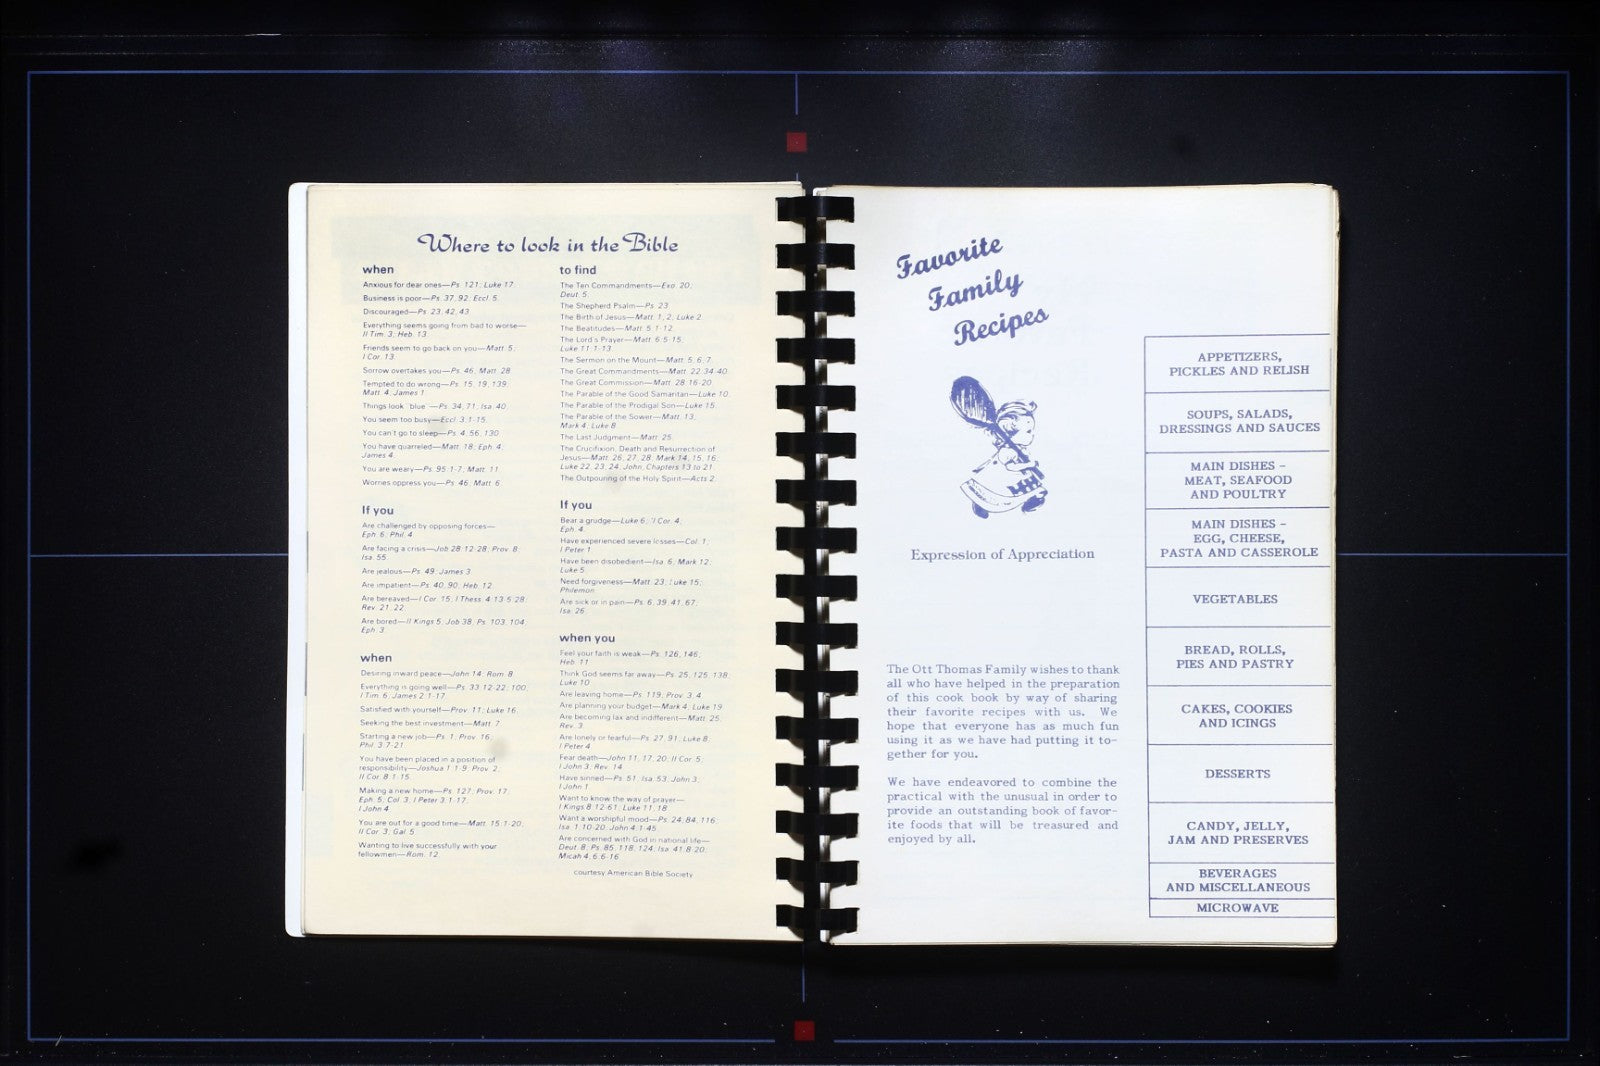 Where to look in the Bible
when
Anxious for dear ones—Ps. 121; Luke 17.
Business is poor—Ps. 37, 92; Eccl. 5.
Discouraged—Ps. 23, 42, 43
Everything seems going from bad to worse—
II Tim. 3; Heb. 13
Friends seem to go back on you—Matt. 5;
I Cor. 13.
Sorrow overtakes you—Ps. 46; Matt. 28
Tempted to do wrong—Ps. 15, 19, 139;
Matt. 4; James 1
Things look "blue"—Ps. 34, 71; Isa. 40
You seem too busy—Eccl. 3:1-15
You can't go to sleep—Ps. 4, 56, 130
You have quarreled—Matt. 18; Eph. 4;
James 4.
You are weary—Ps. 95:1-7; Matt. 11
Worries oppress you—Ps. 46; Matt. 6.
If you
Are challenged by opposing forces—
Eph. 6; Phil. 4
Are facing a crisis—Job 28:12-28; Prov. 8;
Isa. 55.
Are jealous—Ps. 49; James 3.
Are impatient—Ps. 40, 90; Heb. 12.
Are bereaved—I Cor. 15; I Thess. 4:13-5:28;
Rev. 21, 22.
Are bored—II Kings 5; Job 38; Ps. 103, 104;
Eph. 3.
when
Desiring inward peace—John 14; Rom. 8.
Everything is going well—Ps. 33:12-22; 100;
I Tim. 6; James 2:1-17.
Satisfied with yourself—Prov. 11; Luke 16.
Seeking the best investment—Matt. 7.
Starting a new job—Ps. 1; Prov. 16;
Phil. 3:7-21.
You have been placed in a position of
responsibility—Joshua 1:1-9; Prov. 2;
II Cor. 8:1-15.
Making a new home—Ps. 127; Prov. 17;
Eph. 5; Col. 3; I Peter 3:1-17;
I John 4
You are out for a good time—Matt. 15:1-20;
II Cor. 3; Gal. 5.
Wanting to live successfully with your
fellowmen—Rom. 12
to find
The Ten Commandments—Exo. 20;
Deut. 5.
The Shepherd Psalm—Ps. 23.
The Birth of Jesus—Matt. 1, 2; Luke 2.
The Beatitudes—Matt. 5:1-12.
The Lord's Prayer—Matt. 6:5-15;
Luke 11:1-13.
The Sermon on the Mount—Matt. 5, 6, 7.
The Great Commandments—Matt. 22:34-40.
The Great Commission—Matt. 28:16-20.
The Parable of the Good Samaritan—Luke 10.
The Parable of the Prodigal Son—Luke 15.
The Parable of the Sower—Matt. 13;
Mark 4; Luke 8.
The Last Judgment—Matt. 25.
The Crucifixion, Death and Resurrection of
Jesus—Matt. 26, 27, 28; Mark 14, 15, 16;
Luke 22, 23, 24; John, Chapters 13 to 21.
The Outpouring of the Holy Spirit—Acts 2.
If you
Bear a grudge—Luke 6; II Cor. 4;
Eph. 4.
Have experienced severe losses—Col. 1;
I Peter 1
Have been disobedient—Isa. 6; Mark 12;
Luke 5.
Need forgiveness—Matt. 23; Luke 15;
Philemon.
Are sick or in pain—Ps. 6, 39, 41, 67;
Isa. 26.
when you
Feel your faith is weak—Ps. 126, 146;
Heb. 11
Think God seems far away—Ps. 25, 125, 138;
Luke 10.
Are leaving home—Ps. 119; Prov. 3, 4.
Are planning your budget—Mark 4; Luke 19.
Are becoming lax and indifferent—Matt. 25;
Rev. 3.
Are lonely or fearful—Ps. 27, 91; Luke 8;
I Peter 4
Fear death—John 11, 17, 20; II Cor. 5;
I John 3; Rev. 14
Have sinned—Ps. 51; Isa. 53; John 3;
I John 1
Want to know the way of prayer—
I Kings 8:12-61; Luke 11, 18.
Want a worshipful mood—Ps. 24, 84, 116;
Isa. 1:10-20; John 4:1-45.
Are concerned with God in national life—
Deut. 8; Ps. 85, 118, 124; Isa. 41:8-20;
Micah 4, 6:6-16.
courtesy American Bible Society
Favorite
Family
Recipes
Expression of Appreciation
The Ott Thomas Family wishes to thank
all who have helped in the preparation
of this cook book by way of sharing
their favorite recipes with us. We
hope that everyone has as much fun
using it as we have had putting it to-
gether for you.
We have endeavored to combine the
practical with the unusual in order to
provide an outstanding book of favor-
ite foods that will be treasured and
enjoyed by all.
APPETIZERS,
PICKLES AND RELISH
SOUPS, SALADS,
DRESSINGS AND SAUCES
MAIN DISHES -
MEAT, SEAFOOD
AND POULTRY
MAIN DISHES -
EGG, CHEESE,
PASTA AND CASSEROLE
VEGETABLES
BREAD, ROLLS,
PIES AND PASTRY
CAKES, COOKIES
AND ICINGS
DESSERTS
CANDY, JELLY,
JAM AND PRESERVES
BEVERAGES
AND MISCELLANEOUS
MICROWAVE